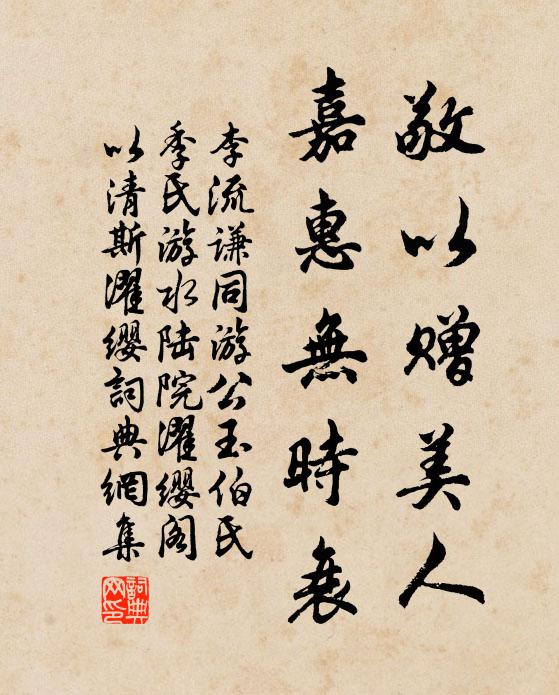 敬以贈美人
嘉惠無時衰
李流謙同游公玉伯氏
季氏游水陆院濯纓阁
以清斯濯纓詞典網集
詞典网印